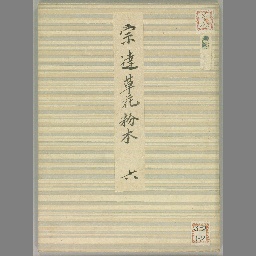 宗達草花粉本 六